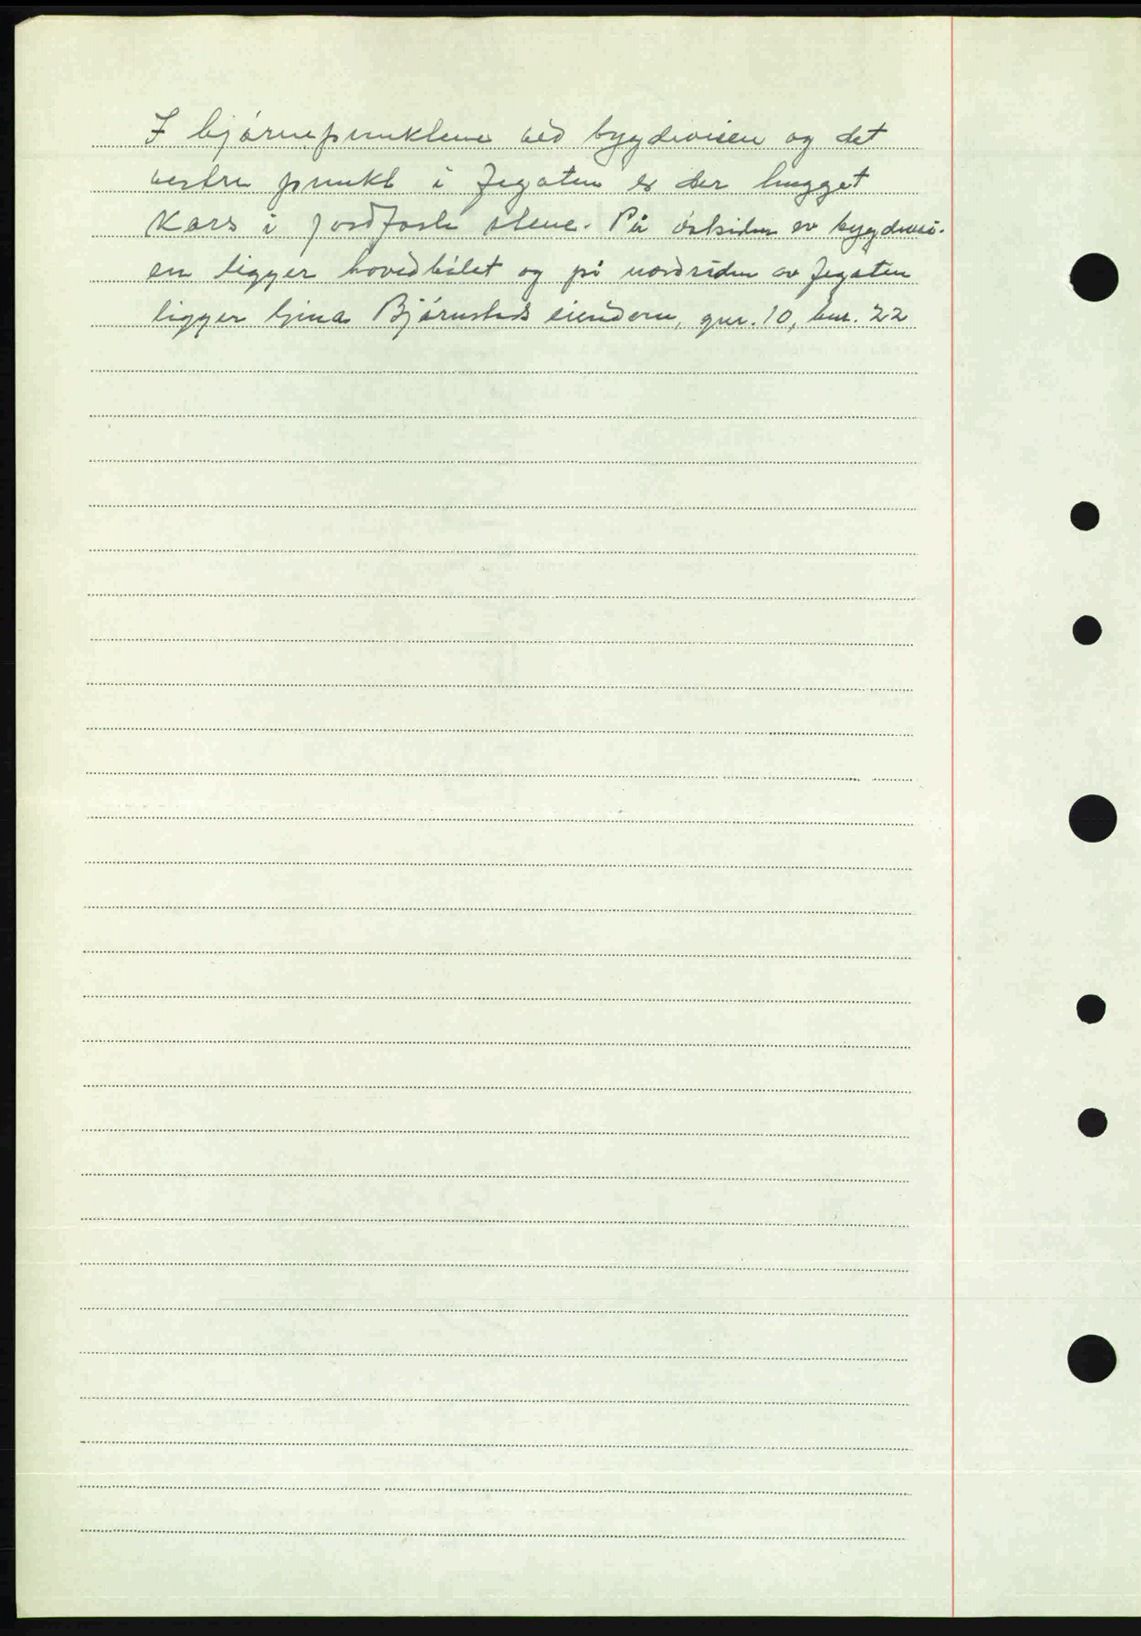 I hjørnepunktene ved bygdeveien og det
vestre punkt i fegaten er der hugget
Kors i jordfaste stene. På østsiden av bygdevei-
en ligger hovedbølet og på nordsiden av fegaten
ligger Gina Bjørnstads eiendom, gnr. 10, bnr. 22